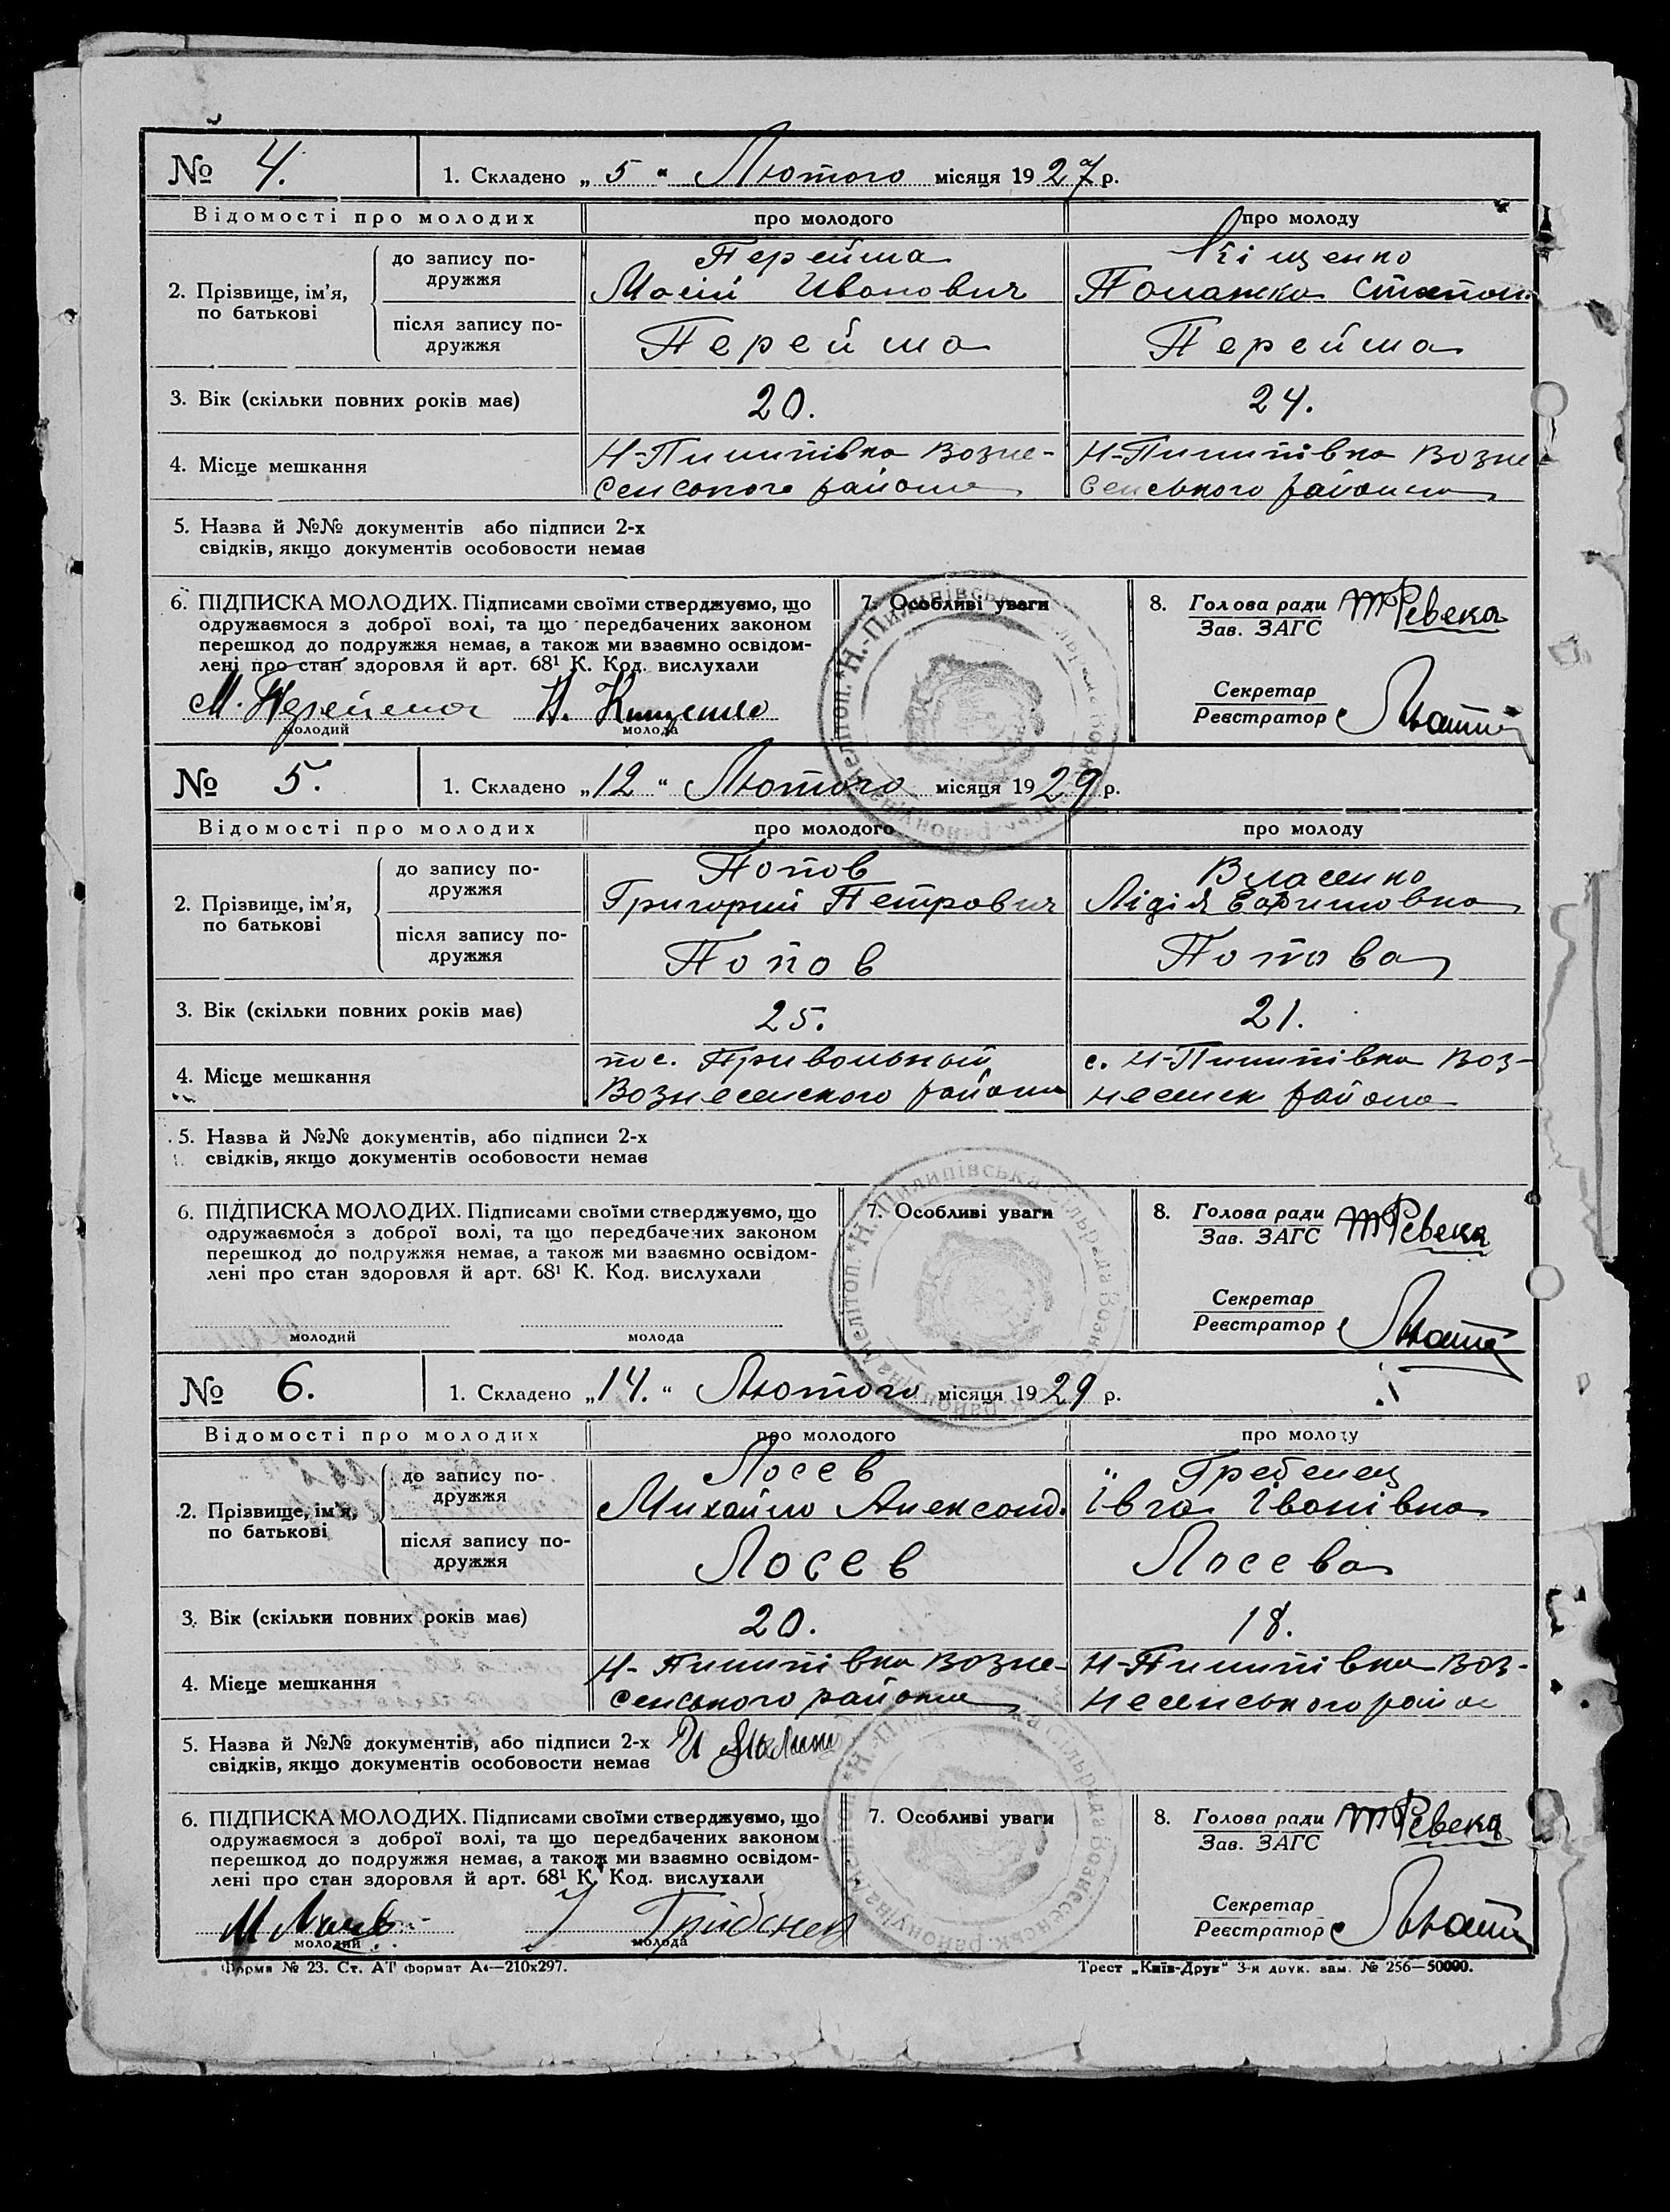 № 4. 1. Складено „ 5 “ Лютого місяця 19 27 р.
Відомості про молодих про молодого про молоду
2. Прізвище, ім'я, по батькові
до запису по-
дружжя
Перейма
Иванович
Кіщенко
після запису по-
дружжя
Перейма Перейма
3. Вік (скільки повних років має) 20. 24.
4. Місце мешкання
Н-Пилипівка Возне- Н-Пилипівка Возне
сенського района сенського района
5. Назва й №№ документів або підписи 2-х
свідків, якщо документів особовости немає
6. ПІДПИСКА МОЛОДИХ. Підписами своїми стверджуємо, що
одружаємося з доброї волі, та що передбачених законом
перешкод до подружжя немає, а також ми взаємно освідом-
лені про стан здоровля й арт. 68¹ К. Код. вислухали
М. Перейма Кищенко
молодий молода
7. Особливі уваги
8. Голова ради
Зав. ЗАГС
Ревека
Секретар
Реєстратор
№ 5. 1. Складено „ 12 “ Лютого місяця 19 29 р.
Відомості про молодих про молодого про молоду
2. Прізвище, ім'я,
по батькові
до запису по-
дружжя
Попов Власенко
Григорий Петрович Лідія Ефимовна
після запису по-
дружжя
Попов Попова
3. Вік (скільки повних років має) 25. 21.
4. Місце мешкання
пос. Привольный с. Н-Пилипівка Воз-
Вознесенского района несенск района
5. Назва й №№ документів, або підписи 2-х
свідків, якщо документів особовости немає
6. ПІДПИСКА МОЛОДИХ. Підписами своїми стверджуємо, що
одружаємося з доброї волі, та що передбачених законом
перешкод до подружжя немає, а також ми взаємно освідом-
лені про стан здоровля й арт. 68¹ К. Код. вислухали
молодий молода
7. Особливі уваги
8. Голова ради
Зав. ЗАГС
Ревека
Секретар
Реєстратор
№ 6. 1. Складено „ 14. “ Лютого місяця 19 29 р.
Відомості про молодих про молодого про молоду
2. Прізвище, ім'я,
по батькові
до запису по-
дружжя
Лосев Гребенец
Михайло Александ. Івга Іванівна
після запису по-
дружжя
Лосев Лосева
3. Вік (скільки повних років має) 20. 18.
4. Місце мешкання
Н-Пилипівка Возне- Н-Пилипівка Воз-
сенського района несенського район
5. Назва й №№ документів, або підписи 2-х
свідків, якщо документів особовости немає
6. ПІДПИСКА МОЛОДИХ. Підписами своїми стверджуємо, що
одружаємося з доброї волі, та що передбачених законом
перешкод до подружжя немає, а також ми взаємно освідом-
лені про стан здоровля й арт. 68¹ К. Код. вислухали
молодий молода
7. Особливі уваги
8. Голова ради
Зав. ЗАГС
Ревека
Секретар
Реєстратор
Форма № 23. Ст. АТ формат А4—210х297. Трест „Київ-Друк“ 3-я друк. зам. № 256—50000.